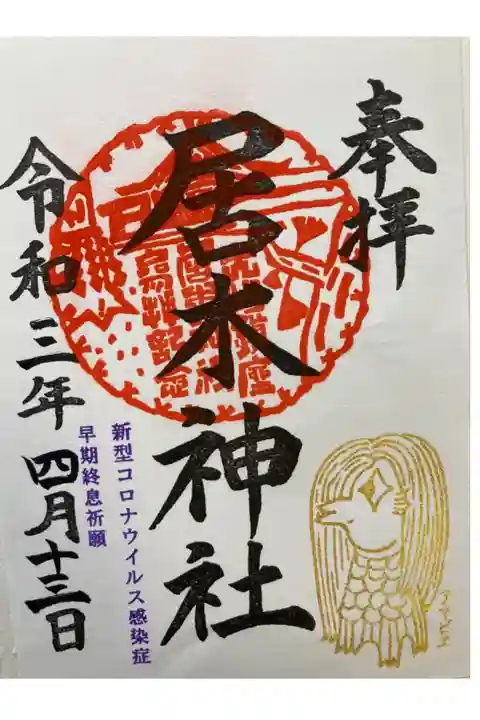 奉拝
居木神社
令和三年四月十三日
新型コロナウイルス感染症
早期終息祈願
アマビエ